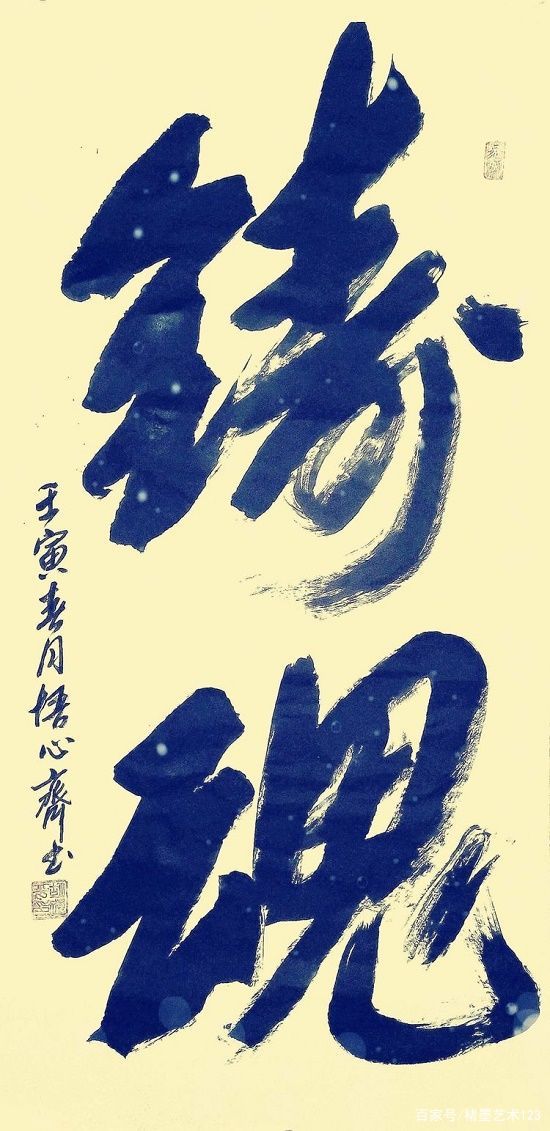 铸魂
壬寅春月悟心齋书
百家号/楮墨艺术123